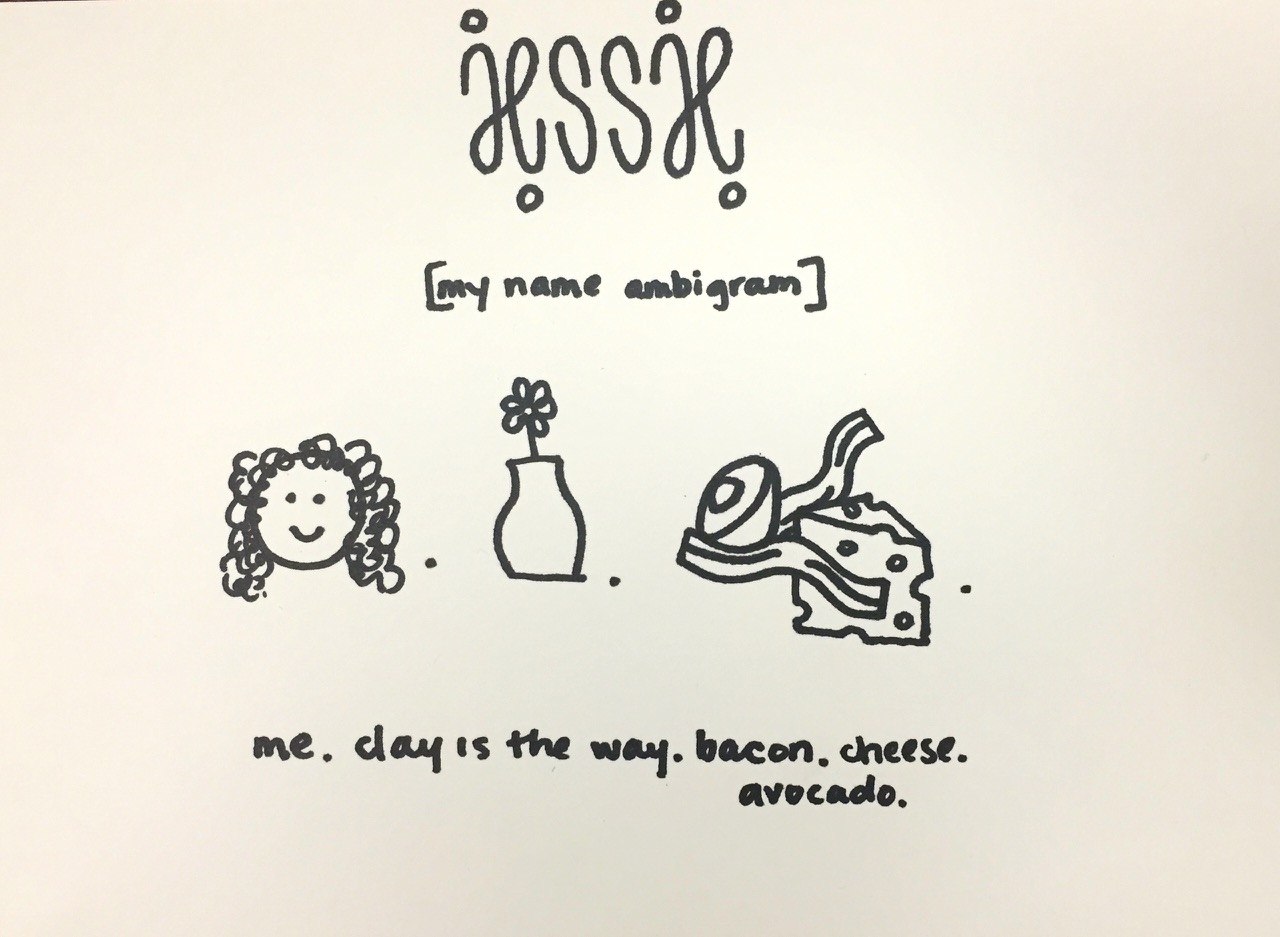 jessie
[my name ambigram]
me. clay is the way. bacon. cheese.
avocado.